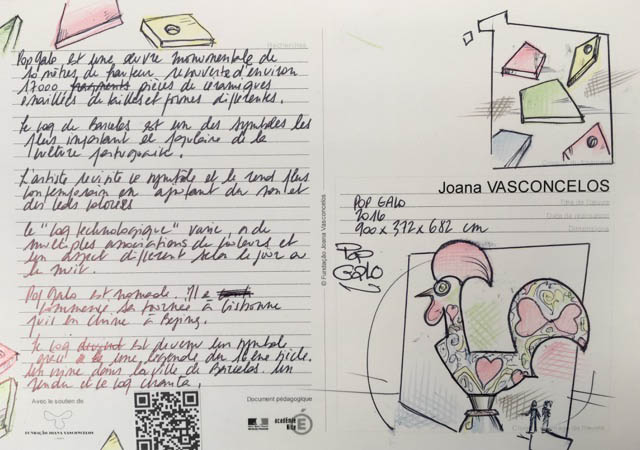 Recherches
Pop Galo est une œuvre monumentale de
10 mètres de hauteur recouverte d'environ
17000 fragments pièces de céramiques
émaillées de tailles et formes différentes.
Le coq de Barcelos est un des symboles les
plus important et populaire de la
culture portugaise.
L'artiste revisite ce symbole et le rend plus
contemporain en ajoutant du son et
des leds colorées
Le "coq technologique" varie, a de
multiples associations de couleurs et
un aspect différent selon le jour ou
la nuit.
Pop Galo est nomade. Il
commence sa tournée à Lisbonne
puis en Chine à Beijing.
Le coq est devenu un symbole
une légende du siècle.
dans la ville de Barcelos. un
pendu et le coq chanta.
Avec le soutien de
FUNDAÇÃO JOANA VASCONCELOS
Document pédagogique
académie
© Fundação Joana Vasconcelos
Joana VASCONCELOS
Titre de l'œuvre
POP GALO
Date de réalisation
2016
Dimensions
900 x 372 x 682 cm
POP
GALO